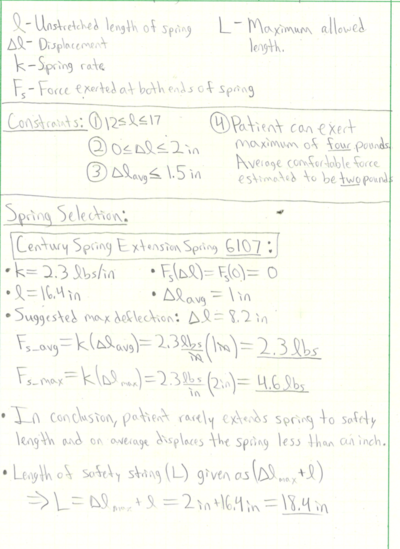 l - Unstretched length of spring
L - Maximum allowed length.
Δl - Displacement
k - Spring rate
Fs - Force exerted at both ends of spring
Constraints: ① 12 ≤ l ≤ 17
② 0 ≤ Δl ≤ 2 in
③ Δlavg ≤ 1.5 in
④ Patient can exert
maximum of four pounds.
Average comfortable force
estimated to be two pounds
Spring Selection:
Century Spring Extension Spring 6107:
• k = 2.3 lbs/in
• Fs(Δl) = Fs(0) = 0
• l = 16.4 in
• Δlavg = 1 in
• Suggested max deflection: Δl = 8.2 in
Fs_avg = k(Δlavg) = 2.3 lbs/in (1 in) = 2.3 lbs
Fs_max = k(Δlmax) = 2.3 lbs/in (2 in) = 4.6 lbs
• In conclusion, patient rarely extends spring to safety
length and on average displaces the spring less than an inch.
• Length of safety string (L) given as (Δlmax + l)
⇒ L = Δlmax + l = 2 in + 16.4 in = 18.4 in